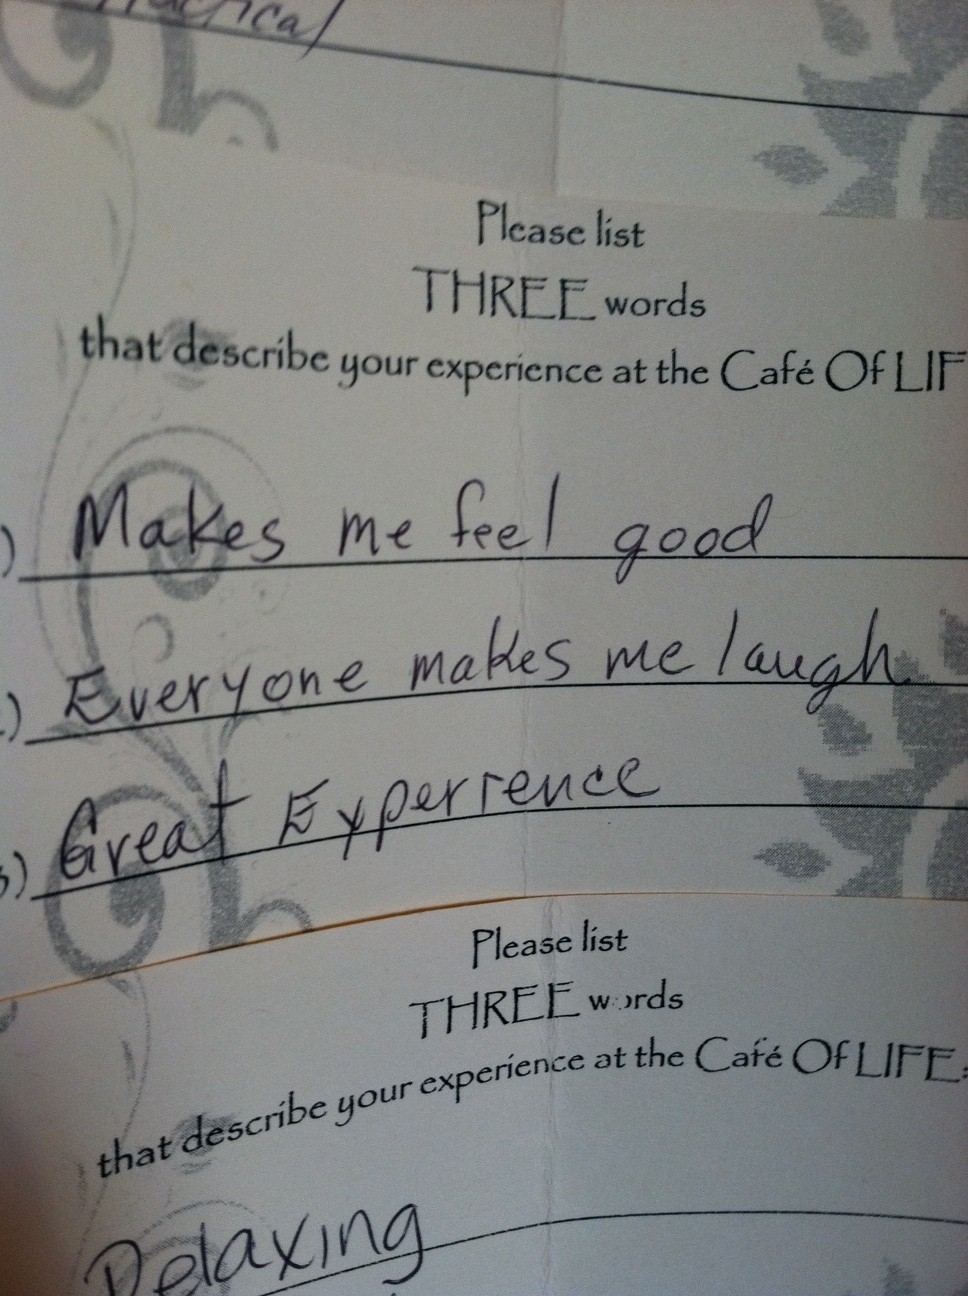 Please list
THREE words
that describe your experience at the Café Of LIF
) Makes me feel good
.) Everyone makes me laugh
3) Great Experience
Please list
THREE words
that describe your experience at the Café Of LIFE:
Relaxing